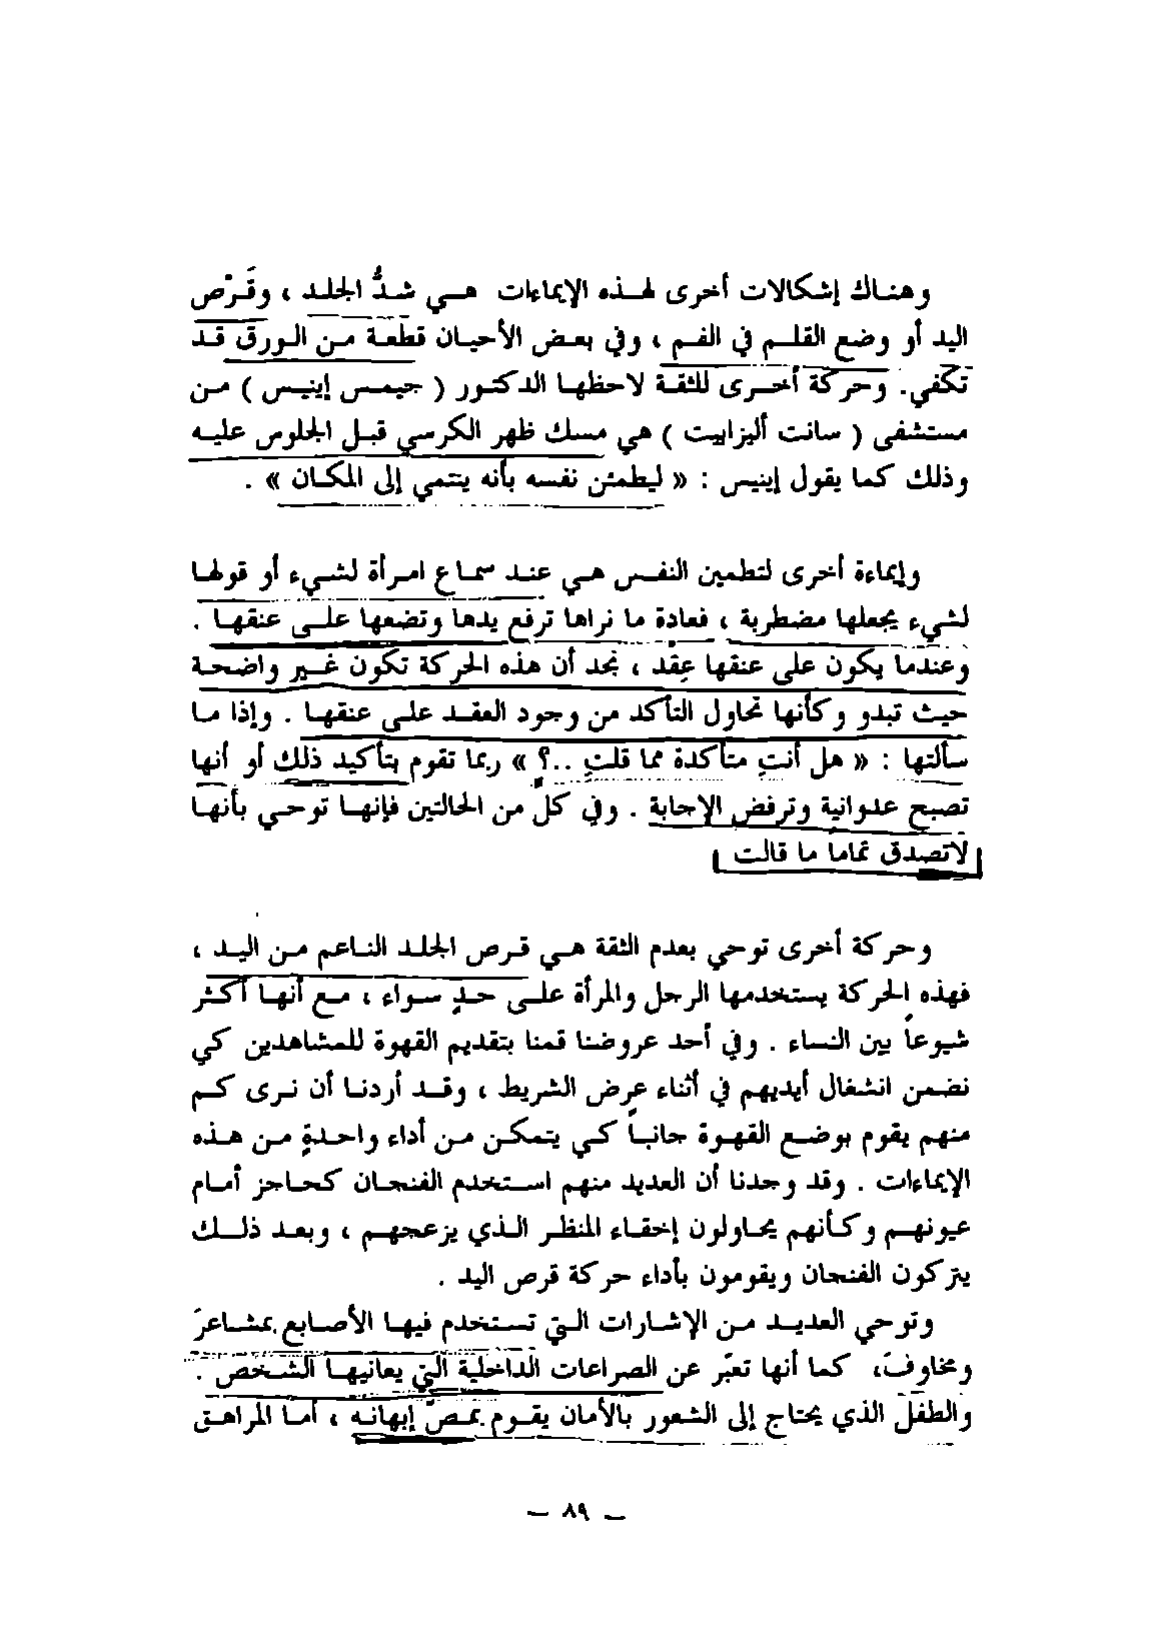 وهناك إشكالات أخرى لهذه الإيماءات هي شدُّ الجلد ، وقَرْص
اليد أو وضع القلم في الفم ، وفي بعض الأحيان قطعة من الورق قد
تكفي. وحركة أخرى للثقة لاحظها الدكتور ( جيمس إينيس ) من
مستشفى ( سانت أليزابيت ) هي مسك ظهر الكرسي قبل الجلوس عليه
وذلك كما يقول إينيس : « ليطمئن نفسه بأنه ينتمي إلى المكان » .
وإيماءة أخرى لتطمين النفس هي عند سماع امرأة لشيء أو قولها
لشيء يجعلها مضطربة ، فعادة ما نراها ترفع يدها وتضعها على عنقها .
وعندما يكون على عنقها عِقد ، نجد أن هذه الحركة تكون غير واضحة
حيث تبدو وكأنها تحاول التأكد من وجود العقد على عنقها . وإذا ما
سألتها : « هل أنتِ متأكدة مما قلتِ ..؟ » ربما تقوم بتأكيد ذلك أو أنها
تصبح عدوانية وترفض الإجابة . وفي كلّ من الحالتين فإنها توحي بأنها
لاتصدق تماماً ما قالت
وحركة أخرى توحي بعدم الثقة هي قرص الجلد الناعم من اليد ،
فهذه الحركة يستخدمها الرجل والمرأة على حدٍ سواء ، مع أنها أكثر
شيوعاً بين النساء . وفي أحد عروضنا قمنا بتقديم القهوة للمشاهدين كي
نضمن انشغال أيديهم في أثناء عرض الشريط ، وقد أردنا أن نرى كم
منهم يقوم بوضع القهوة جانباً كي يتمكن من أداء واحدةٍ من هذه
الإيماءات . وقد وجدنا أن العديد منهم استخدم الفنجان كحاجز أمام
عيونهم وكأنهم يحاولون إخفاء المنظر الذي يزعجهم ، وبعد ذلك
يتركون الفنجان ويقومون بأداء حركة قرص اليد .
وتوحي العديد من الإشارات التي تستخدم فيها الأصابع بمشاعرَ
ومخاوفَ، كما أنها تعبّر عن الصراعات الداخلية التي يعانيها الشخص .
والطفل الذي يحتاج إلى الشعور بالأمان يقوم بمصّ إبهامه ، أما المراهق
– ٨٩ –